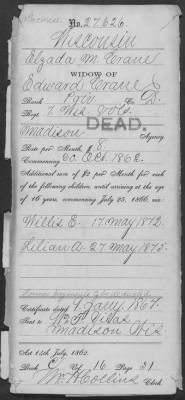 No. 27626.
Wisconsin
Elzada M. Crane
WIDOW OF
Edward Crane
Rank Priv Co. D.
Regt. 7 Wis. Vols
DEAD.
Madison Agency
Rate per Month, $ 8.
Commencing 30 Oct. 1862.
Additional sum of $2 per Month for each
of the following children, until arriving at the age
of 16 years, commencing July 25, 1866, viz:
Willis E. 17 May 1872.
Lilian A. 27 May 1875.
Former payments to be deducted
Certificate dated 9 Jany. 1867.
Sent to
Madison Wis
Act 14th July, 1862.
Book C Vol 16 Page 31
Wm H Collins Clerk.